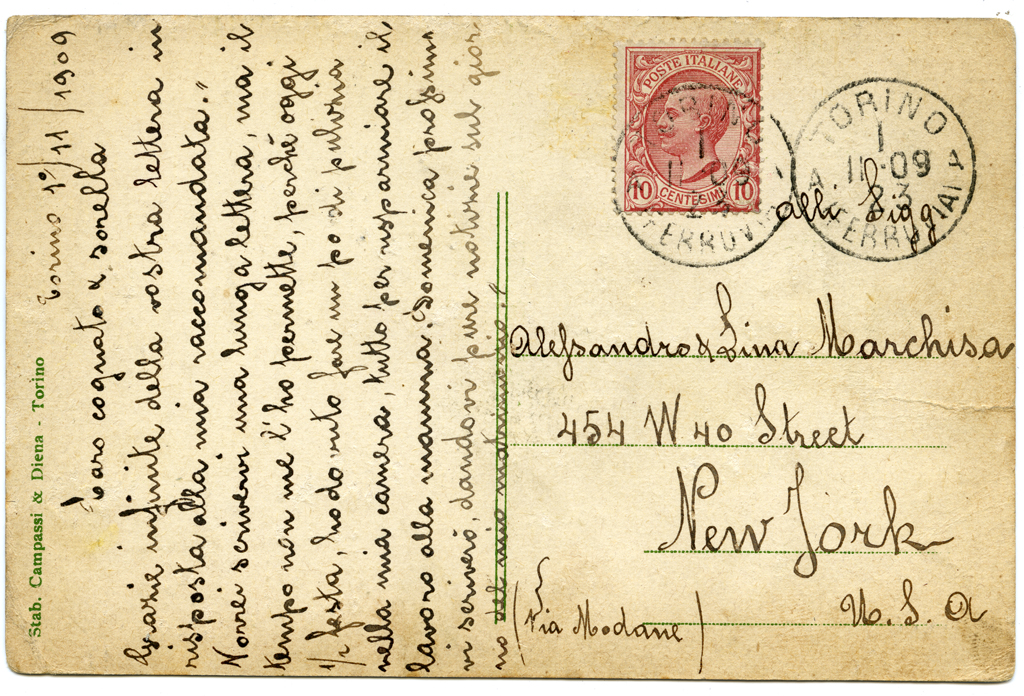 Torino 1°/11/1909
Caro cognato & sorella
Grazie infinite della vostra lettera in
risposta alla mia raccomandata."
Vorrei scrivervi una lunga lettera, ma il
tempo non me l'ho permette, perchè oggi
1/2 festa, ho dovuto fare un po di pulizia
nella mia camera, tutto per risparmiare il
lavoro alla mamma. Domenica prossima
vi scriverò, dandovi pure notizie sul gior
no del mio matrimonio.
Stab. Campassi & Diena - Torino
POSTE ITALIANE
10 CENTESIMI 10
TORINO
1
11-09
23
FERROVIA
TORINO
1
A 11-09 A
23
FERROVIA
alli Sigg
Alessandro & Lina Marchisa
454 W 40 Street
New Jork
U. S. A
(Via Modane)